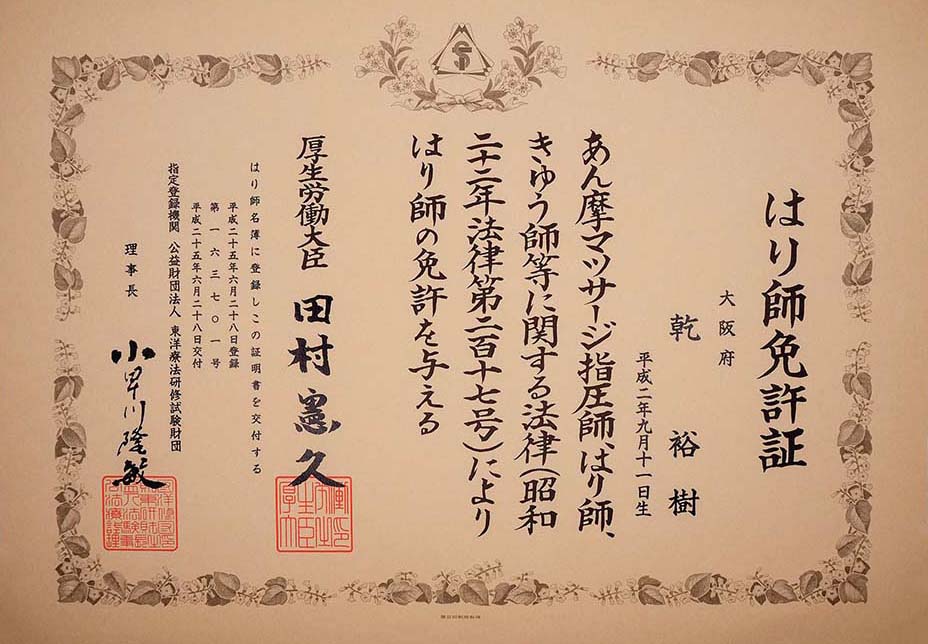 はり師免許証
大阪府
乾　裕樹
平成二年九月十一日生
あん摩マツサージ指圧師、はり師、
きゆう師等に関する法律（昭和
二十二年法律第二百十七号）により
はり師の免許を与える
厚生労働大臣　田村憲久
はり師名簿に登録しこの証明書を交付する
平成二十五年六月二十八日登録
第一六三七〇一号
平成二十五年六月二十八日交付
指定登録機関　公益財団法人　東洋療法研修試験財団
理事長　小早川隆敏